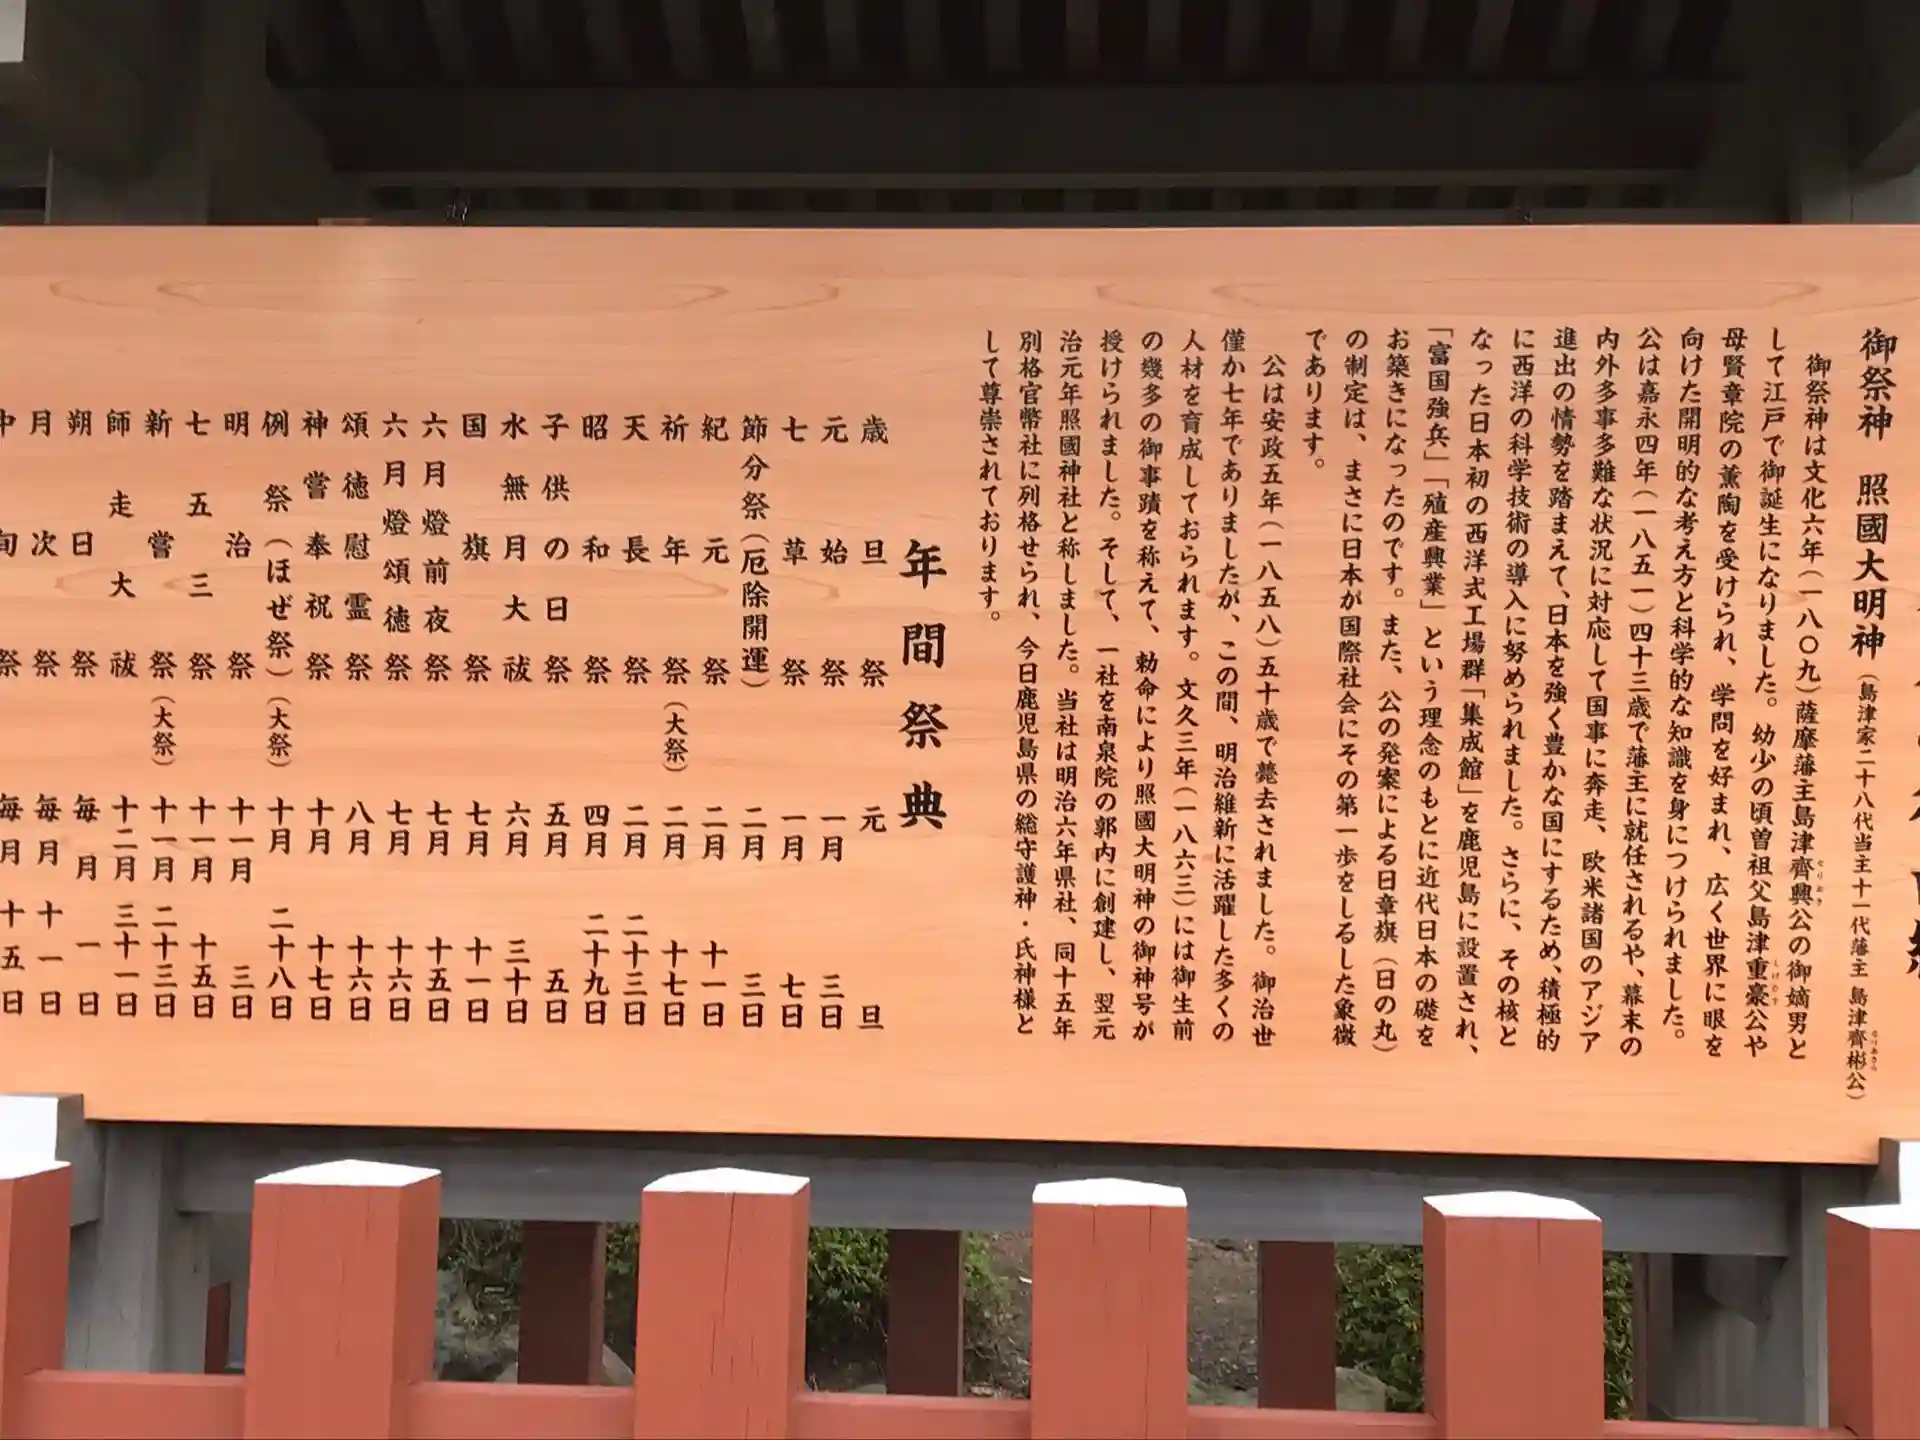 御祭神 照國大明神(島津家二十八代当主十一代藩主 島津齊彬公)
なりあきら
御祭神は文化六年(一八〇九)薩摩藩主島津齊興公の御嫡男と
なりおき
して江戸で御誕生になりました。幼少の頃曽祖父島津重豪公や
しげひで
母賢章院の薫陶を受けられ、学問を好まれ、広く世界に眼を
向けた開明的な考え方と科学的な知識を身につけられました。
公は嘉永四年(一八五一)四十三歳で藩主に就任されるや、幕末の
内外多事多難な状況に対応して国事に奔走、欧米諸国のアジア
進出の情勢を踏まえて、日本を強く豊かな国にするため、積極的
に西洋の科学技術の導入に努められました。さらに、その核と
なった日本初の西洋式工場群「集成館」を鹿児島に設置され、
「富国強兵」「殖産興業」という理念のもとに近代日本の礎を
お築きになったのです。また、公の発案による日章旗(日の丸)
の制定は、まさに日本が国際社会にその第一歩をしるした象徴
であります。
公は安政五年(一八五八)五十歳で薨去されました。御治世
僅か七年でありましたが、この間、明治維新に活躍した多くの
人材を育成しておられます。文久三年(一八六三)には御生前
の幾多の御事蹟を称えて、勅命により照國大明神の御神号が
授けられました。そして、一社を南泉院の郭内に創建し、翌元
治元年照國神社と称しました。当社は明治六年県社、同十五年
別格官幣社に列格せられ、今日鹿児島県の総守護神・氏神様と
して尊崇されております。
年間祭典
歳旦祭 元旦
元始祭 一月三日
七草祭 一月七日
節分祭(厄除開運) 二月三日
紀元祭 二月十一日
祈年祭(大祭) 二月十七日
天長祭 二月二十三日
昭和祭 四月二十九日
子供の日祭 五月五日
水無月大祓 六月三十日
国旗祭 七月十一日
六月燈前夜祭 七月十五日
六月燈頌徳祭 七月十六日
頌徳慰霊祭 八月十六日
神嘗奉祝祭 十月十七日
例祭(ほぜ祭)(大祭) 十月二十八日
明治祭 十一月三日
七五三祭 十一月十五日
新嘗祭(大祭) 十一月二十三日
師走大祓 十二月三十一日
朔日祭 毎月一日
月次祭 毎月十一日
中旬祭 毎月十五日